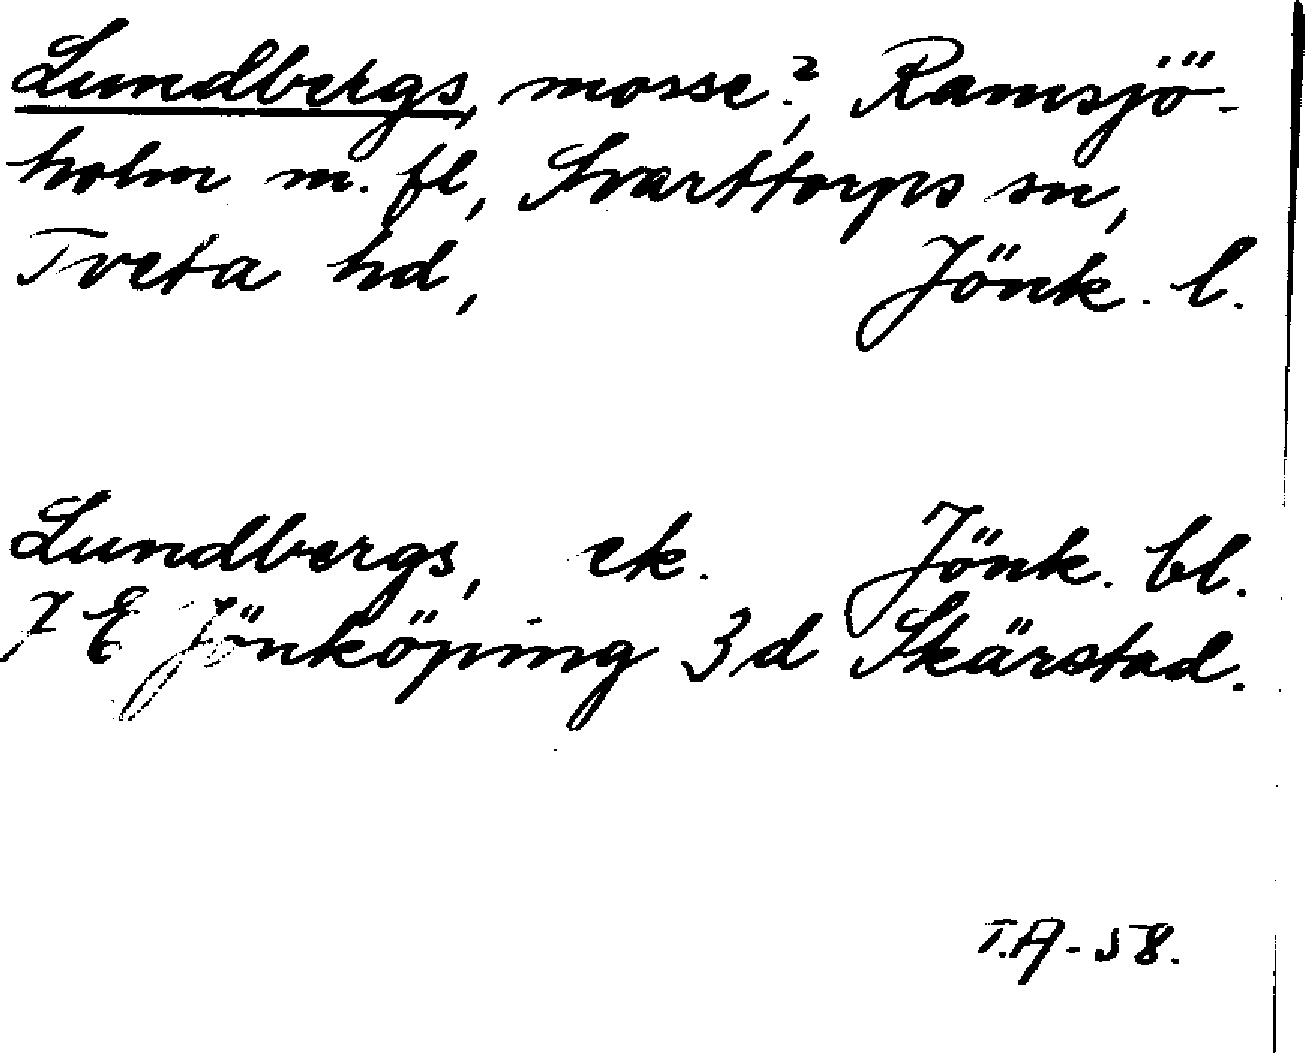 Lundbergs, mosse?, Ramsjö-
holm m. fl, Svarttorps sn,
Tveta hd, Jönk. l.
Lundbergs, ek. Jönk. bl.
7 E Jönköping 3d Skärstad.
T.A-58.